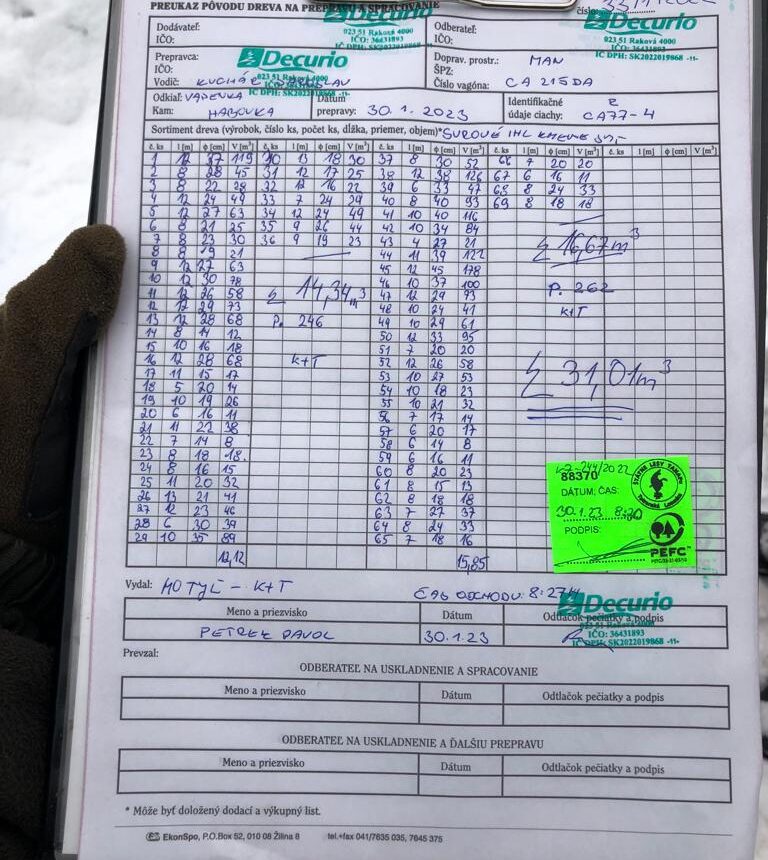 PREUKAZ PÔVODU DREVA NA PREPRAVU A SPRACOVANIE
číslo:
Decurio
023 51 Raková 4000
IČO: 36431893
IČ DPH: SK2022019868 -11-
Decurio
023 51 Raková 4000
IČ DPH: SK2022019868 -11-
Dodávateľ:
IČO:
Odberateľ:
IČO:
Prepravca:
IČO:
Decurio
023 51 Raková 4000
IČ DPH: SK2022019868 -11-
Vodič: KUCHÁR
Doprav. prostr.: MAN
ŠPZ:
Číslo vagóna: CA 215DA
Odkiaľ: VAPENKA
Kam: HABOVKA
Dátum prepravy: 30.1.2023
Identifikačné údaje ciachy: CA77-4
Sortiment dreva (výrobok, číslo ks, počet ks, dĺžka, priemer, objem)* SUROVÉ IHL KMENE
č. ks l [m] ϕ [cm] V [m³] č. ks l [m] ϕ [cm] V [m³] č. ks l [m] ϕ [cm] V [m³] č. ks l [m] ϕ [cm] V [m³] č. ks l [m] ϕ [cm] V [m³]
1 12 37 119 30 13 18 30 37 8 30 52 66 7 20 20
2 8 28 45 31 12 17 25 38 12 38 126 67 6 16 11
3 8 22 28 32 12 16 22 39 6 33 47 68 8 24 33
4 12 24 49 33 7 24 29 40 8 40 93 69 8 18 18
5 12 27 63 34 12 24 49 41 10 40 116
6 8 21 25 35 9 26 44 42 10 34 84
7 8 23 30 36 9 19 23 43 4 27 21
8 8 19 21 44 11 39 122
9 12 27 63 45 12 45 178
10 12 30 78 46 10 37 100
11 12 26 58 47 12 29 73
12 12 29 73 48 10 24 41
13 12 28 68 49 10 29 61
14 8 14 12 50 12 33 95
15 10 16 18 51 7 20 20
16 12 28 68 52 12 26 58
17 11 15 17 53 10 27 53
18 5 20 14 54 10 18 23
19 10 19 26 55 10 21 32
20 6 16 11 56 7 17 14
21 11 22 38 57 6 20 17
22 7 14 8 58 6 14 8
23 8 18 18 59 6 16 11
24 8 16 15 60 8 20 23
25 11 20 32 61 8 15 13
26 13 21 41 62 8 18 18
27 12 23 46 63 7 27 37
28 6 30 39 64 8 24 33
29 10 35 89 65 7 18 16
12,12 15,85
Σ 14,34 m³
P. 246
K+T
Σ 16,67 m³
P. 262
K+T
Σ 31,01 m³
88370
ŠTÁTNE LESY TANAPU
DÁTUM, ČAS:
30.1.23 8:20
PODPIS:
PEFC
Vydal: MOTYĽ - K+T
ČAS ODCHODU: 8:27H
Decurio
023 51 Raková 4000
IČO: 36431893
IČ DPH: SK2022019868 -11-
Meno a priezvisko Dátum Odtlačok pečiatky a podpis
PETREK PAVOL 30.1.23
Prevzal:
ODBERATEĽ NA USKLADNENIE A SPRACOVANIE
Meno a priezvisko Dátum Odtlačok pečiatky a podpis
ODBERATEĽ NA USKLADNENIE A ĎALŠIU PREPRAVU
Meno a priezvisko Dátum Odtlačok pečiatky a podpis
* Môže byť doložený dodací a výkupný list.
EkonSpo, P.O.Box 52, 010 08 Žilina 8 tel.+fax 041/7635 035, 7645 375